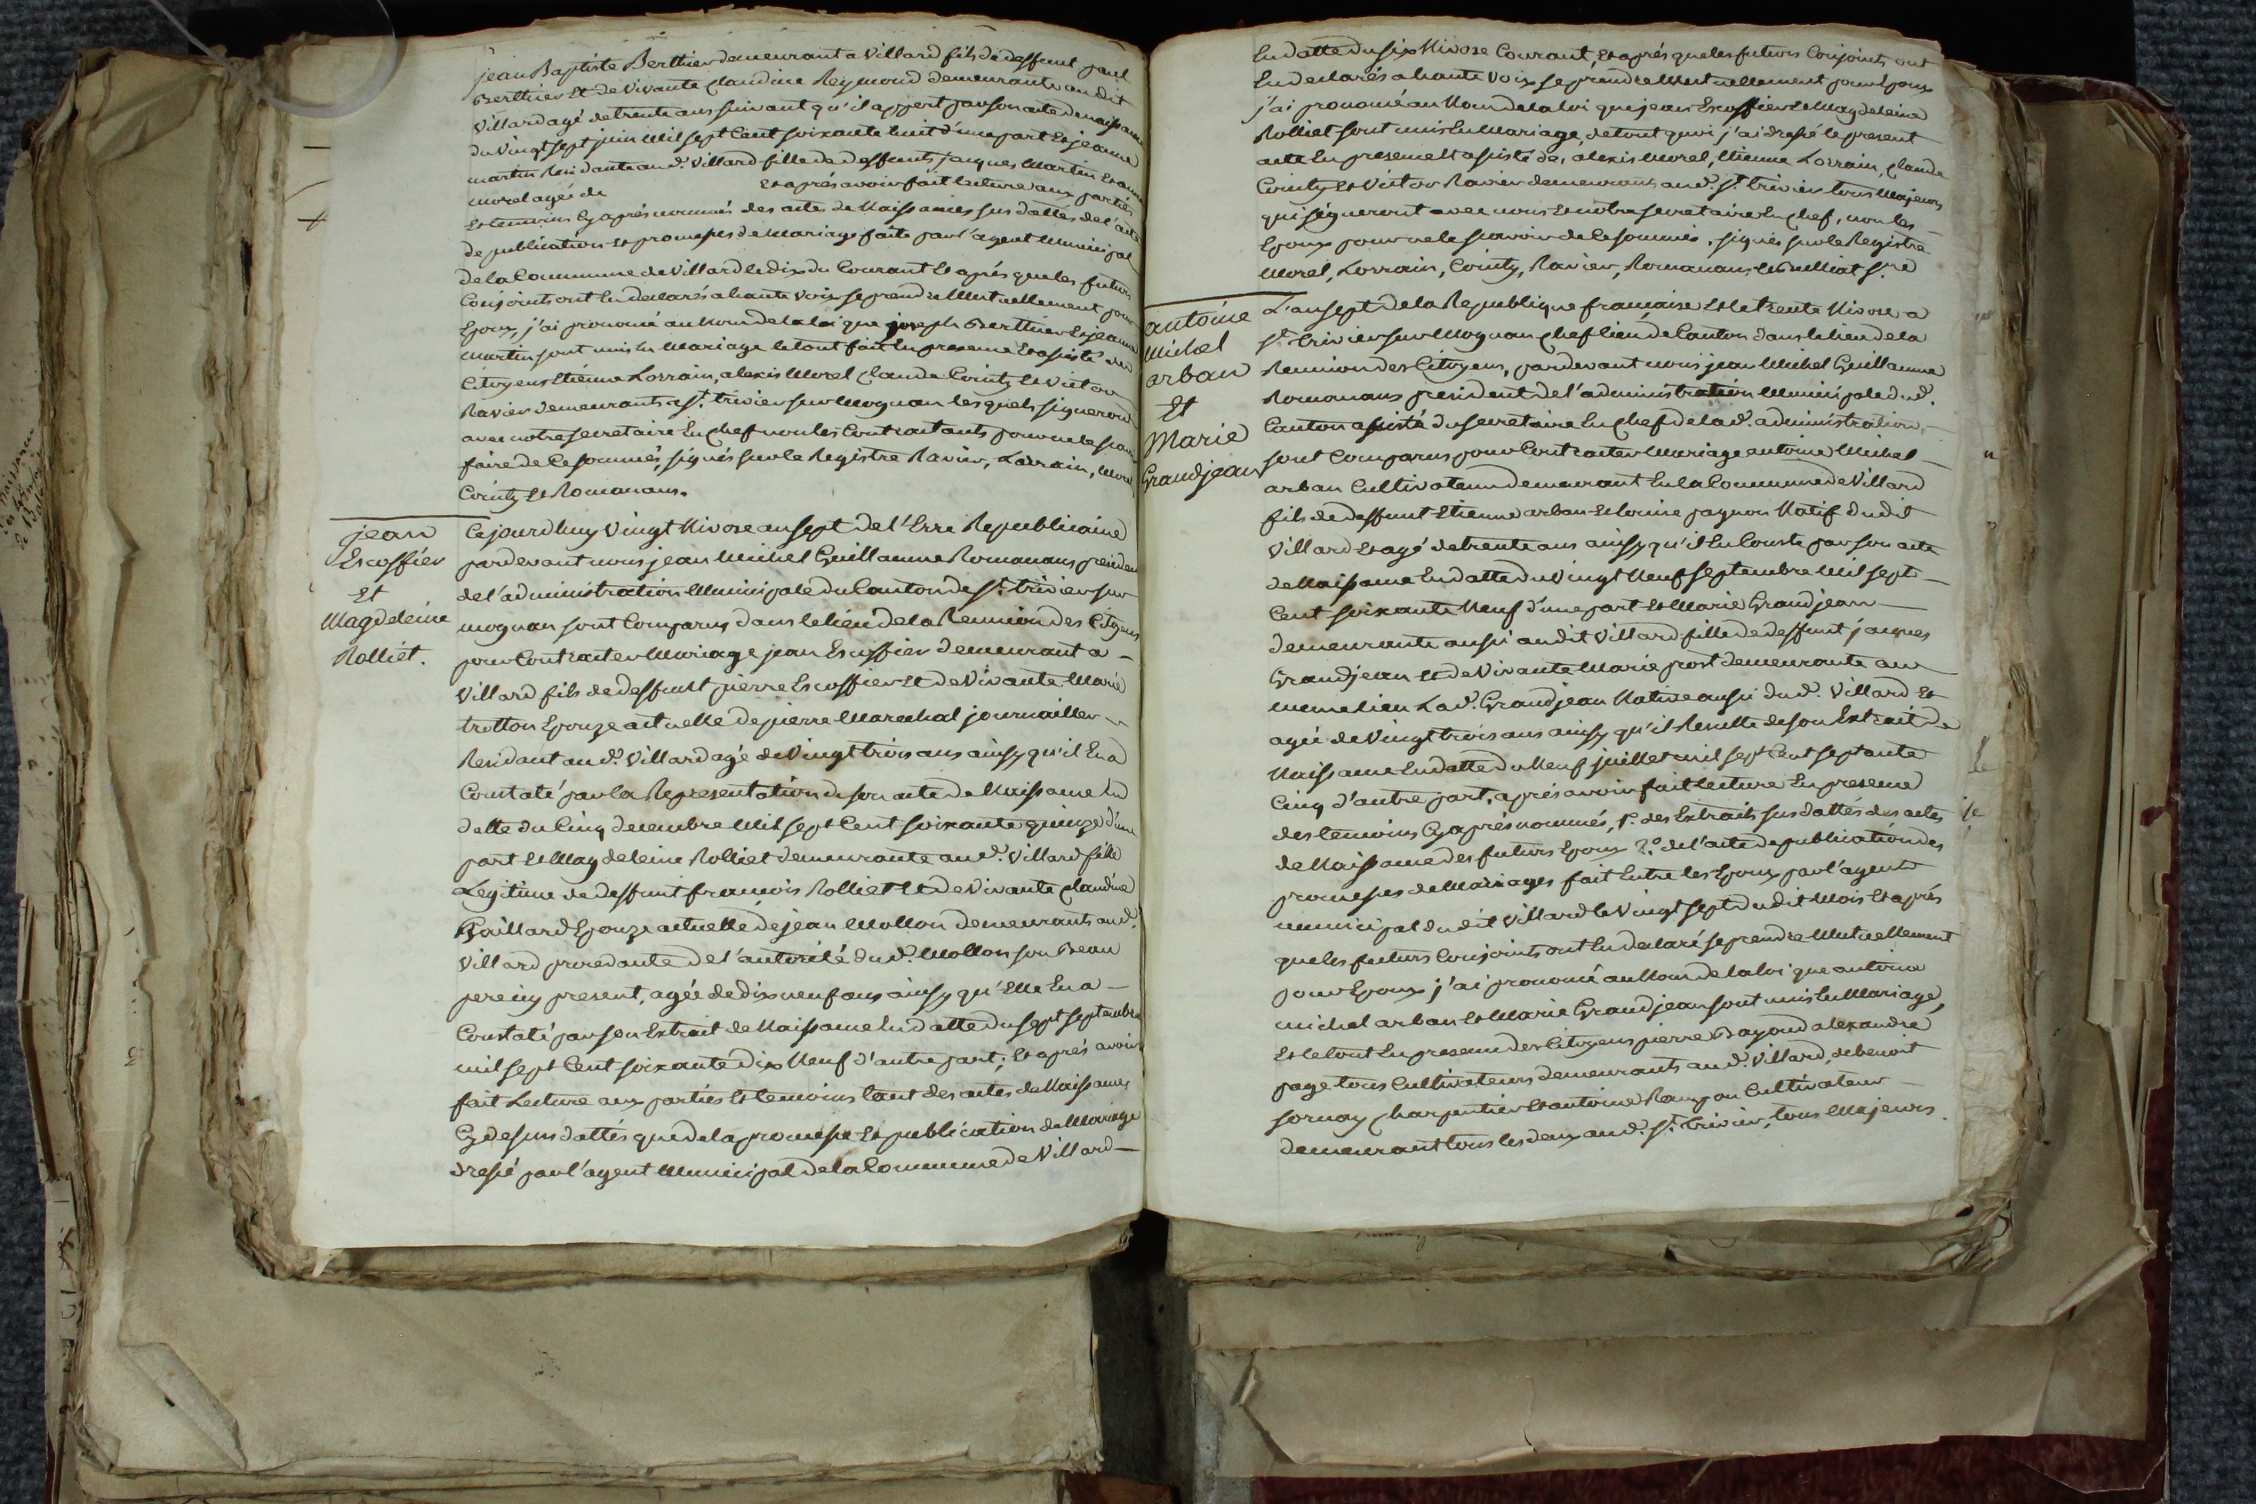 jean Baptiste Berthier demeurant a Villard fils de deffunt paul
Berthier Et de Vivante Claudine Reymond demeurante audit
Villard agé de trente ans suivant qu'il appert par son acte de naissance
du Vingt sept juin Mil sept Cent soixante huit d'une part Et jeanne
martin Residante aud. Villard fille de deffunts jacques Martin Et anne
morel agée de Et aprés avoir fait lecture aux parties
Et temoins Cy aprés nommés des actes de Naissances sus dattés de l'acte
de publication Et promesses de Mariage faite par l'agent Municipal
de la Commune de Villard le dix du Courant Et aprés que les futurs
Conjoints ont Eu declarés a haute voix se prendre Mutuellement pour
Epoux, j'ai prononcé au Nom de la loi que joseph Berthier Et jeanne
Martin sont unis En Mariage le tout fait En presence Et assisté des
Citoyens Etienne Lorrain, alexis Morel Claude Cointy Et Victor
Ravier demeurants a St. trivier sur Mognan lesquels signeront
avec notre secretaire En Chef non les Contractants pour ne le scavoir
faire de Ce sommés, signés sur le Registre Ravier, Lorrain, Morel
Cointy Et Romanans.
jean
Escoffier
Et
Magdeleine
Rolliet.
Cejourdhuy Vingt Nivose an sept de l'Erre Republicaine
pardevant nous jean Michel Guillaume Romanans president
de l'administration Municipale du Canton de St. trivier sur
mognan sont Comparus dans le lieu de la Reunion des Citoyens
pour Contracter Mariage jean Escoffier demeurant a
Villard fils de deffunt pierre Escoffier Et de Vivante Marie
tretton Epouze actuelle de pierre Marechal journaillier
Residant aud. Villard agé de Vingt trois ans ainsy qu'il En a
Constaté par la Representation de son acte de Naissance En
datte du Cinq decembre Mil sept Cent soixante quinze d'une
part Et Magdeleine Rolliet demeurante aud. Villard fille
Legitime de deffunt françois Rolliet Et de Vivante Claudine
Gaillard Epouze actuelle de jean Mollon demeurants aud.
Villard procedante de l'autorité dud. Mollon son Beau
pere icy present, agée de dix neuf ans ainsy qu'Elle En a
Constaté par son Extrait de Naissance En datte du sept septembre
mil sept Cent soixante dix Neuf d'autre part; Et aprés avoir
fait Lecture aux parties Et temoins tant des actes de Naissances
Cy dessus dattés que de la promesse Et publication de Mariage
dressé par l'agent Municipal de la Commune de Villard
En datte du six Nivose Courant, Et aprés que les futurs Conjoints ont
Eu declarés a haute Voix se prendre Mutuellement pour Epoux
j'ai prononcé au Nom de la loi que jean Escoffier Et Magdeleine
Rolliet sont unis En Mariage, de tout quoi j'ai dressé le present
acte En presence Et assisté de, alexis Morel, Etienne Lorrain, Claude
Cointy Et Victor Ravier demeurants aud. St. trivier tous Majeurs
qui signeront avec nous Et notre secretaire En Chef, non les
Epoux pour ne le scavoir de Ce sommés, signés sur le Registre
Morel, Lorrain, Cointy, Ravier, Romanans Et
antoine
Michel
arban
Et
Marie
Grandjean
L'an sept de la Republique française Et le trente Nivose a
St. trivier sur Mognan Chef lieu de Canton dans le lieu de la
Reunion des Citoyens, pardevant nous jean Michel Guillaume
Romanans president de l'administration Municipale dud.
Canton assisté du secretaire En Chef de lad. administration,
sont Comparus pour Contracter Mariage antoine Michel
arban Cultivateur demeurant En la Commune de Villard
fils de deffunt Etienne arban Et Louise pagnon Natif dudit
Villard Et agé de trente ans ainsy qu'il En Conste par son acte
de Naissance En datte du Vingt Neuf septembre Mil sept
Cent soixante Neuf d'une part Et Marie Grandjean
demeurante aussi audit Villard fille de deffunt jacques
Grandjean Et de Vivante Marie prost demeurante au
meme lieu Lad. Grandjean Native aussi dud. Villard Et
agée de Vingt trois ans ainsy qu'il Resulte de son Extrait de
Naissance En datte du Neuf juillet mil sept Cent septante
Cinq d'autre part, aprés avoir fait lecture En presence
des temoins Cy aprés nommés, 1º. des Extraits sus dattés des actes
de Naissance des futurs Epoux 2º. de l'acte de publication des
promesses de Mariages fait Entre les Epoux par l'agent
municipal dudit Villard le Vingt sept dudit Mois Et aprés
que les futurs Conjoints ont Eu declaré se prendre Mutuellement
pour Epoux j'ai prononcé au Nom de la loi que antoine
michel arban Et Marie Grandjean sont unis En Mariage,
Et le tout En presence des Citoyens pierre Bayoud alexandre
page tous Cultivateurs demeurants aud. Villard, de benoit
sornay Charpentier Et antoine Rampon Cultivateur
demeurant tous les deux aud. St. trivier, tous Majeurs.